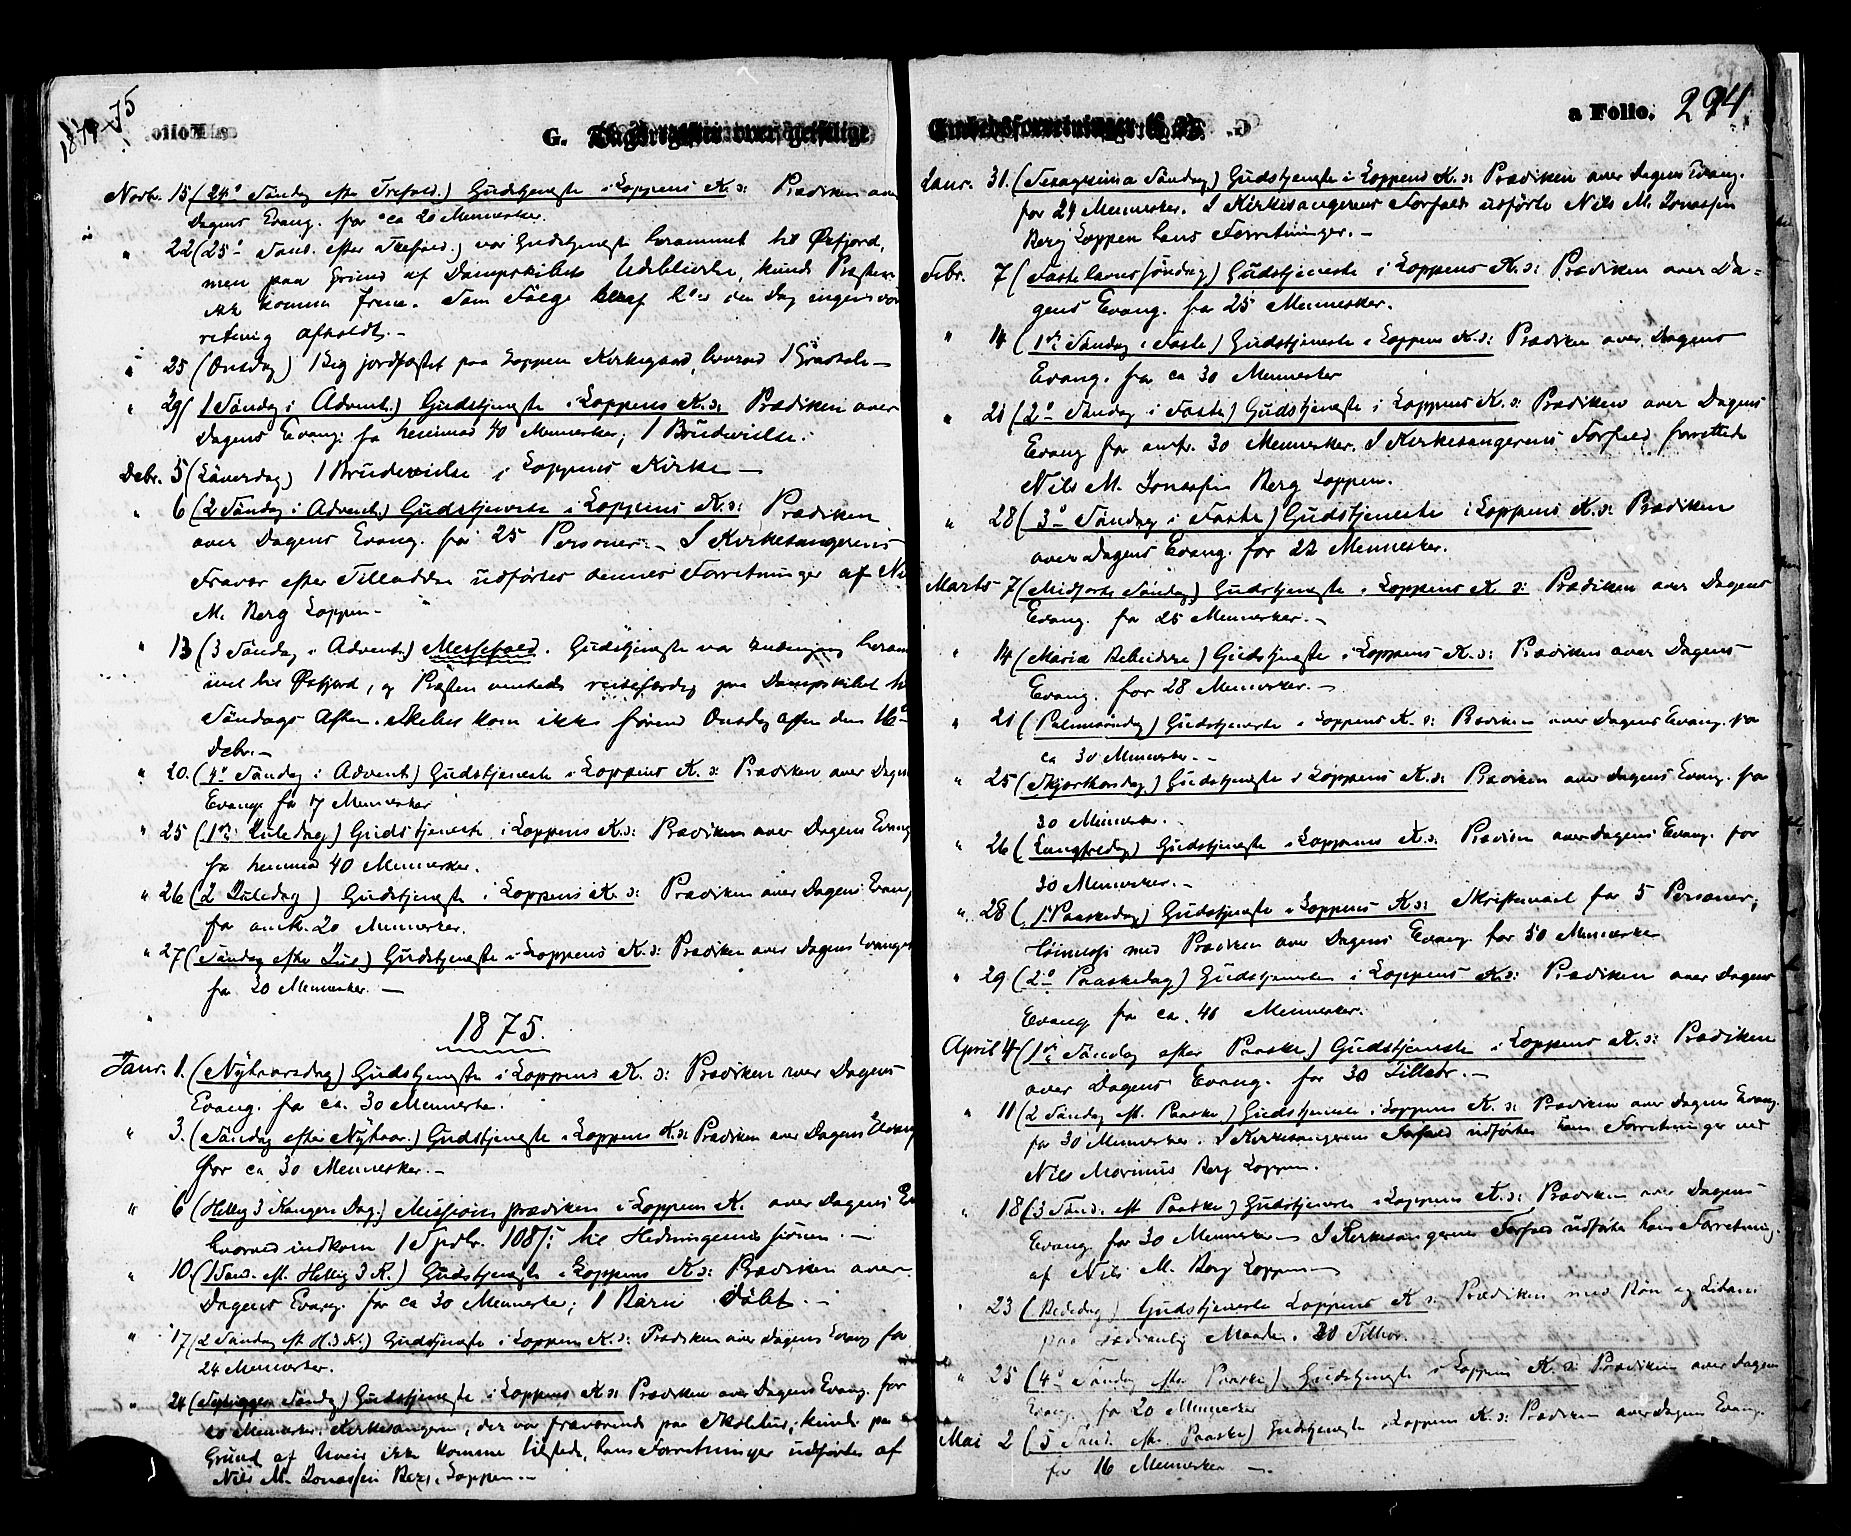 1874-75
G. Dagsregister over geistlige
Novbr. 15 (24de Søndag efter Trefold.) Gudstjeneste i Loppens K. ɔ: Prædiken over
Dagens Evang. for ca 20 Mennesker.
" 22 (25de Sønd. efter Trefold.) var Gudstjeneste berammet til Øxfjord,
men paa Grund af Dampskibets Udeblivelse, kunde Præsten
ikke komme frem. Som Følge heraf blev den Dag ingen For
retning afholdt.-
" 25 (Onsdag) 1 Lig jordfæstet paa Loppen Kirkegaard, hvorved 1 Gravtale-
" 29 (1 Søndag i Advent.) Gudstjeneste i Loppens K. ɔ: Prædiken over
Dagens Evang. for henimod 40 Mennesker; 1 Brudevielse.
Debr. 5 (Løverdag) 1 Brudevielse i Loppens Kirke-
" 6 (2 Søndag i Advent.) Gudstjeneste i Loppens K. ɔ: Prædiken
over Dagens Evang. for 25 Personer.- I Kirkesangerens
Fravær efter Tilladelse udførtes dennes Forretninger af Ni
M. Berg Loppen-
" 13 (3 Søndag i Advent.) Messefald. Gudstjeneste var beram
met til Øxfjord, og Præsten ventede reisefærdig paa Dampskibet
Søndags Aften. Skibet kom ikke førend Onsdag aften den 16de
Debr.-
" 20. (4de Søndag i Advent.) Gudstjeneste i Loppens K. ɔ: Prædiken over Dagens
Evang. for 17 Mennesker
" 25 (1ste Juledag) Gudstjeneste i Loppens K. ɔ: Prædiken over Dagens Evang
for henimod 40 Mennesker.
" 26 (2 Juledag) Gudstjeneste i Loppens K. ɔ: Prædiken over Dagens Evang
for omtr. 20 Mennesker.
" 27 (Søndag efter Jul) Gudstjeneste i Loppens K. ɔ: Prædiken over Dagens Evange
for 20 Mennesker. -
1875.
Janr. 1. (Nytaarsdag) Gudstjeneste i Loppens K. ɔ: Prædiken over Dagens
Evang. for ca. 30 Mennesker.
" 3. (Søndag efter Nytaar.) Gudstjeneste i Loppens K. ɔ: Prædiken over Dagens Evang
for ca 30 Mennesker.-
" 6 (Hellig 3 Kongers Dag.) Missions prædiken i Loppens K. over Dagens Ev
hvorved indkom 1 Spdlr. 108 ß til Hedningemissionen.-
" 10. (1 Sønd. eft. Hellig 3 K.) Gudstjeneste i Loppens K. ɔ: Prædiken over
Dagens Evang. for ca 30 Mennesker; 1 Barn døbt.-
" 17 (2 Søndag eft H. 3 K.) Gudstjeneste i Loppens K. ɔ: Prædiken over Dagens Evang for
24 Mennesker.
" 24 (Septuages. Søndag) Gudstjeneste i Loppens K. ɔ: Prædiken over Dagens Evang. for
20 Mennesker. Kirkesangeren, der var fraværende paa, kunde paa
Grund af Uveir ikke komme tilstede, hans Forretninger udførtes af
Nils M. Jonassen Berg, Loppen.-
Embedsforretninger
a Folio. 294
Janr. 31. (Sexagesima Søndag) Gudstjeneste i Loppens K. ɔ: Prædiken over Dagens Evang.
for 29 Mennesker. I Kirkesangerens Forfald udførte Nils M. Jonassen
Berg Loppen hans Forretninger.-
Febr. 7 (Fastelavnssøndag) Gudstjeneste i Loppens K. ɔ: Prædiken over Da=
gens Evang. for 25 Mennesker.
" 14 (1ste Søndag i Faste) Gudstjeneste i Loppens K. ɔ: Prædiken over Dagens
Evang. for ca 30 Mennesker
" 21 (2de Søndag i Faste) Gudstjeneste i Loppens K. ɔ: Prædiken over Dagens
Evang for omtr. 30 Mennesker. I Kirkesangerens Forfald forrettede
Nils M. Jonassen Berg Loppen.
" 28 (3de Søndag i Faste) Gudstjeneste i Loppens K. ɔ: Prædiken
over Dagens Evang. for 22 Mennesker.
Marts 7 (Midfaste Søndag) Gudstjeneste i Loppens K. ɔ: Prædiken over Dagens
Evang. for 25 Mennesker.-
" 14 (Mariæ Bebudelse) Gudstjeneste i Loppens K. ɔ: Prædiken over Dagens
Evang. for 28 Mennesker.-
" 21 (Palmesøndag) Gudstjeneste i Loppens K. ɔ: Prædiken over Dagens Evang. for
ca 30 Mennesker.-
" 25 (Skjærthorsdag) Gudstjeneste i Loppens K. ɔ: Prædiken over Dagens Evang. for
30 Mennesker.
" 26 (Langfredag) Gudstjeneste i Loppens K. ɔ: Prædiken over Dagens Evang. for
30 Mennesker.-
" 28 (1ste Paaskedag) Gudstjeneste i Loppens K. ɔ: Skriftemaal for 5 Personer,
Høimesse med Prædiken over Dagens Evang. for 50 Mennesker
" 29 (2de Paaskedag) Gudstjeneste i Loppens K. ɔ: Prædiken over Dagens
Evang for ca. 46 Mennesker.
April 4 (1ste Søndag efter Paaske) Gudstjeneste i Loppens K. ɔ: Prædiken
over Dagens Evang. for 30 Tilhør.-
" 11 (2 Søndag eft. Paaske) Gudstjeneste i Loppens K. ɔ: Prædiken over Dagens Evang.
for 30 Mennesker. I Kirkesangerens Forfald udførtes hans Forretninger ved
Nils Marinus Berg Loppen.
" 18 (3 Sønd. eft Paaske) Gudstjeneste i Loppens K. ɔ: Prædiken over Dagens
Evang. for 30 Mennesker- I Kirkesangerens Forfald udførtes hans Forretning.
af Nils M. Berg Loppen-
" 23 (Bededag) Gudstjeneste Loppens K ɔ: Prædiken med Bøn og Litani
paa sædvanlig Maade. 20 Tilhør.
" 25 (4de Søndag efter Paaske) Gudstjeneste i Loppens K. ɔ: Prædiken over Dagens
Evang. for 20 Mennesker
Mai 2 (5 Sønd. eftr. Paaske) Gudstjeneste i Loppens K. ɔ: Prædiken over Dagens Evang.
for 16 Mennesker -.